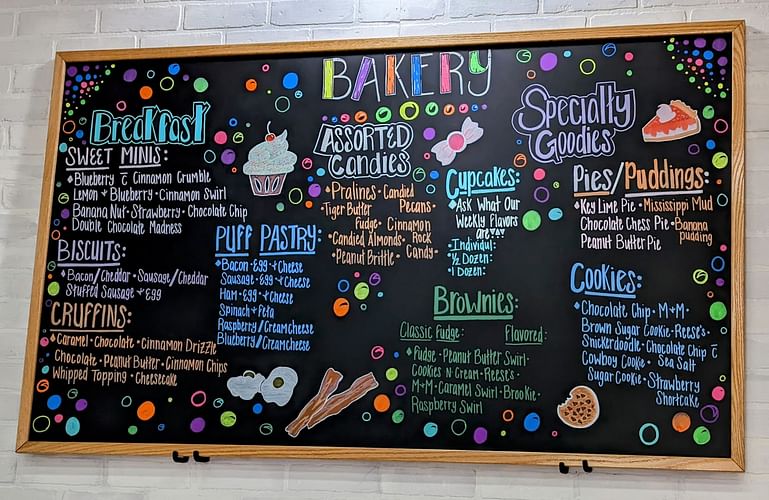 BAKERY
Breakfast
SWEET MINIS:
◆Blueberry c̄ Cinnamon Crumble
Lemon & Blueberry · Cinnamon Swirl
Banana Nut · Strawberry · Chocolate Chip
Double Chocolate Madness
BISCUITS:
◆Bacon/Cheddar · Sausage/Cheddar
Stuffed Sausage & Egg
CRUFFINS:
◆Caramel · Chocolate · Cinnamon Drizzle
Chocolate · Peanut Butter · Cinnamon Chips
Whipped Topping · Cheesecake
PUFF PASTRY:
◆Bacon · Egg & Cheese
Sausage · Egg & Cheese
Ham · Egg & Cheese
Spinach & Feta
Raspberry/Creamcheese
Blueberry/Creamcheese
ASSORTED
Candies
◆Pralines · Candied
Pecans ·
◆Tiger Butter
Fudge · Cinnamon
◆Candied Almonds · Rock
◆Peanut Brittle · Candy
Cupcakes:
◆Ask What Our
Weekly Flavors
are
◆Individul:
½ Dozen:
1 Dozen:
Brownies:
Classic Fudge: Flavored:
◆Fudge · Peanut Butter Swirl ·
Cookies N Cream · Reese's ·
M&M · Caramel Swirl · Brookie ·
Raspberry Swirl
Specialty
Goodies
Pies/Puddings:
◆Key Lime Pie · Mississippi Mud
Chocolate Chess Pie · Banana
Peanut Butter Pie pudding
Cookies:
◆Chocolate Chip · M&M ·
Brown Sugar Cookie · Reese's ·
Snickerdoodle · Chocolate Chip c̄
Cowboy Cookie · Sea Salt
Sugar Cookie · Strawberry
Shortcake